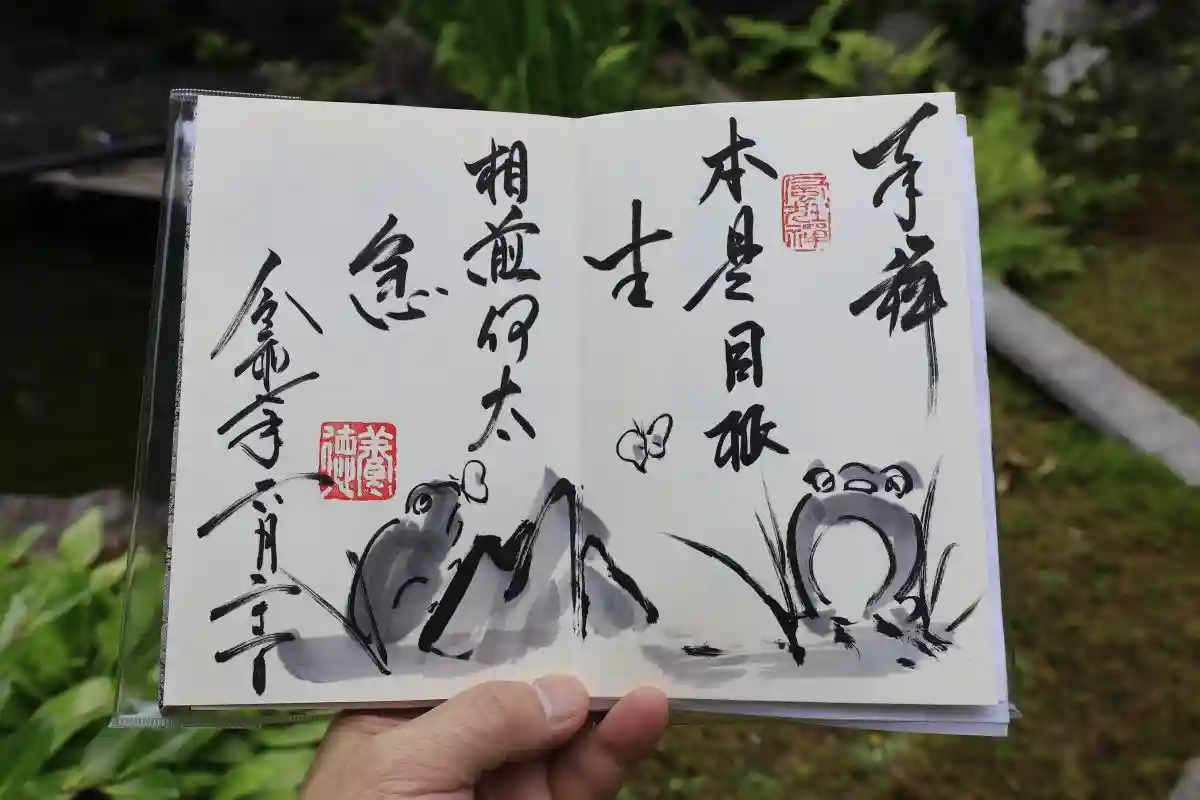 奉拝
本是同根
生
相煎何太
急
令和 年六月二十
養徳